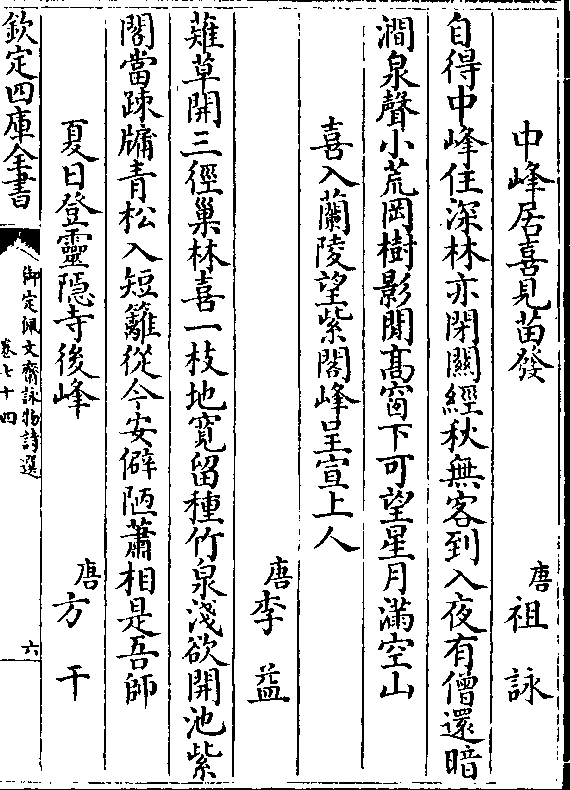 中峰居喜見苗發
唐祖詠
自得中峰住深林亦閉關經秋無客到入夜有僧還暗
澗泉聲小荒岡樹影閒高窗下可望星月滿空山
喜入蘭陵望紫閣峰呈宣上人
唐李益
薙草開三徑巢林喜一枝地寛留種竹泉淺欲開池紫
閣當疎牖青松入短籬從今安僻陋蕭相是吾師
夏日登靈隠寺後峰
唐方干
欽定四庫全書
御定佩文齋詠物詩選
卷七十四
六